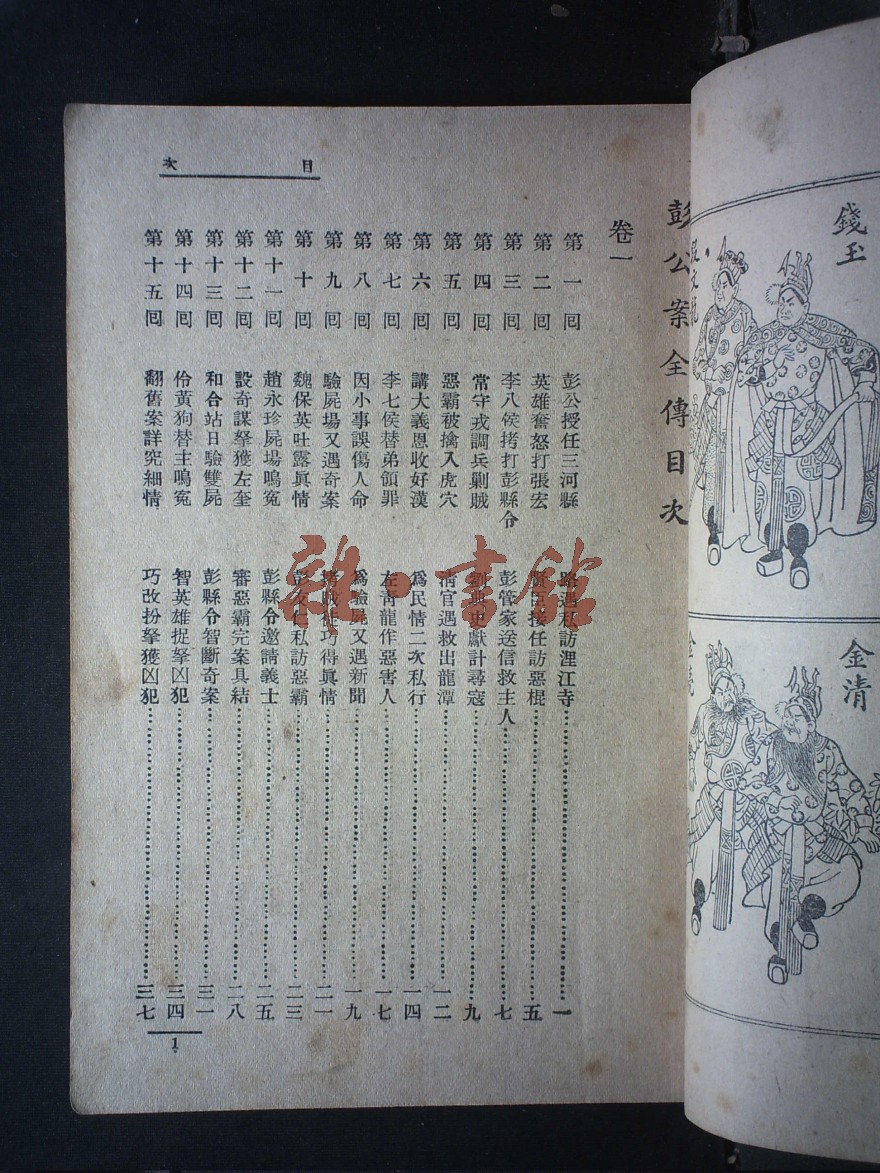 目次
彭公案全傳目次
卷一
第一囘 彭公授任三河縣 路過私訪浬江寺 一
第二囘 英雄奮怒打張宏 賢臣接任訪惡棍 五
第三囘 李八侯拷打彭縣令 彭管家送信救主人 七
第四囘 常守戎調兵剿賊 劉典史獻計尋寇 九
第五囘 惡霸被擒入虎穴 清官遇救出龍潭 一二
第六囘 講大義恩收好漢 爲民情二次私行 一四
第七囘 李七侯替弟領罪 左青龍作惡害人 一七
第八囘 因小事誤傷人命 爲驗屍又遇新聞 一九
第九囘 驗屍場又遇奇案 巧得眞情 二一
第十囘 魏保英吐露眞情 彭友仁私訪惡霸 二三
第十一囘 趙永珍屍場鳴寃 彭縣令邀請義士 二五
第十二囘 設奇謀拏獲左奎 審惡霸完案具結 二八
第十三囘 和合站日驗雙屍 彭縣令智斷奇案 三一
第十四囘 伶黃狗替主鳴寃 智英雄捉拏凶犯 三四
第十五囘 翻舊案詳究細情 巧改扮拏獲凶犯 三七
1
錢玉
金清
雜·書館